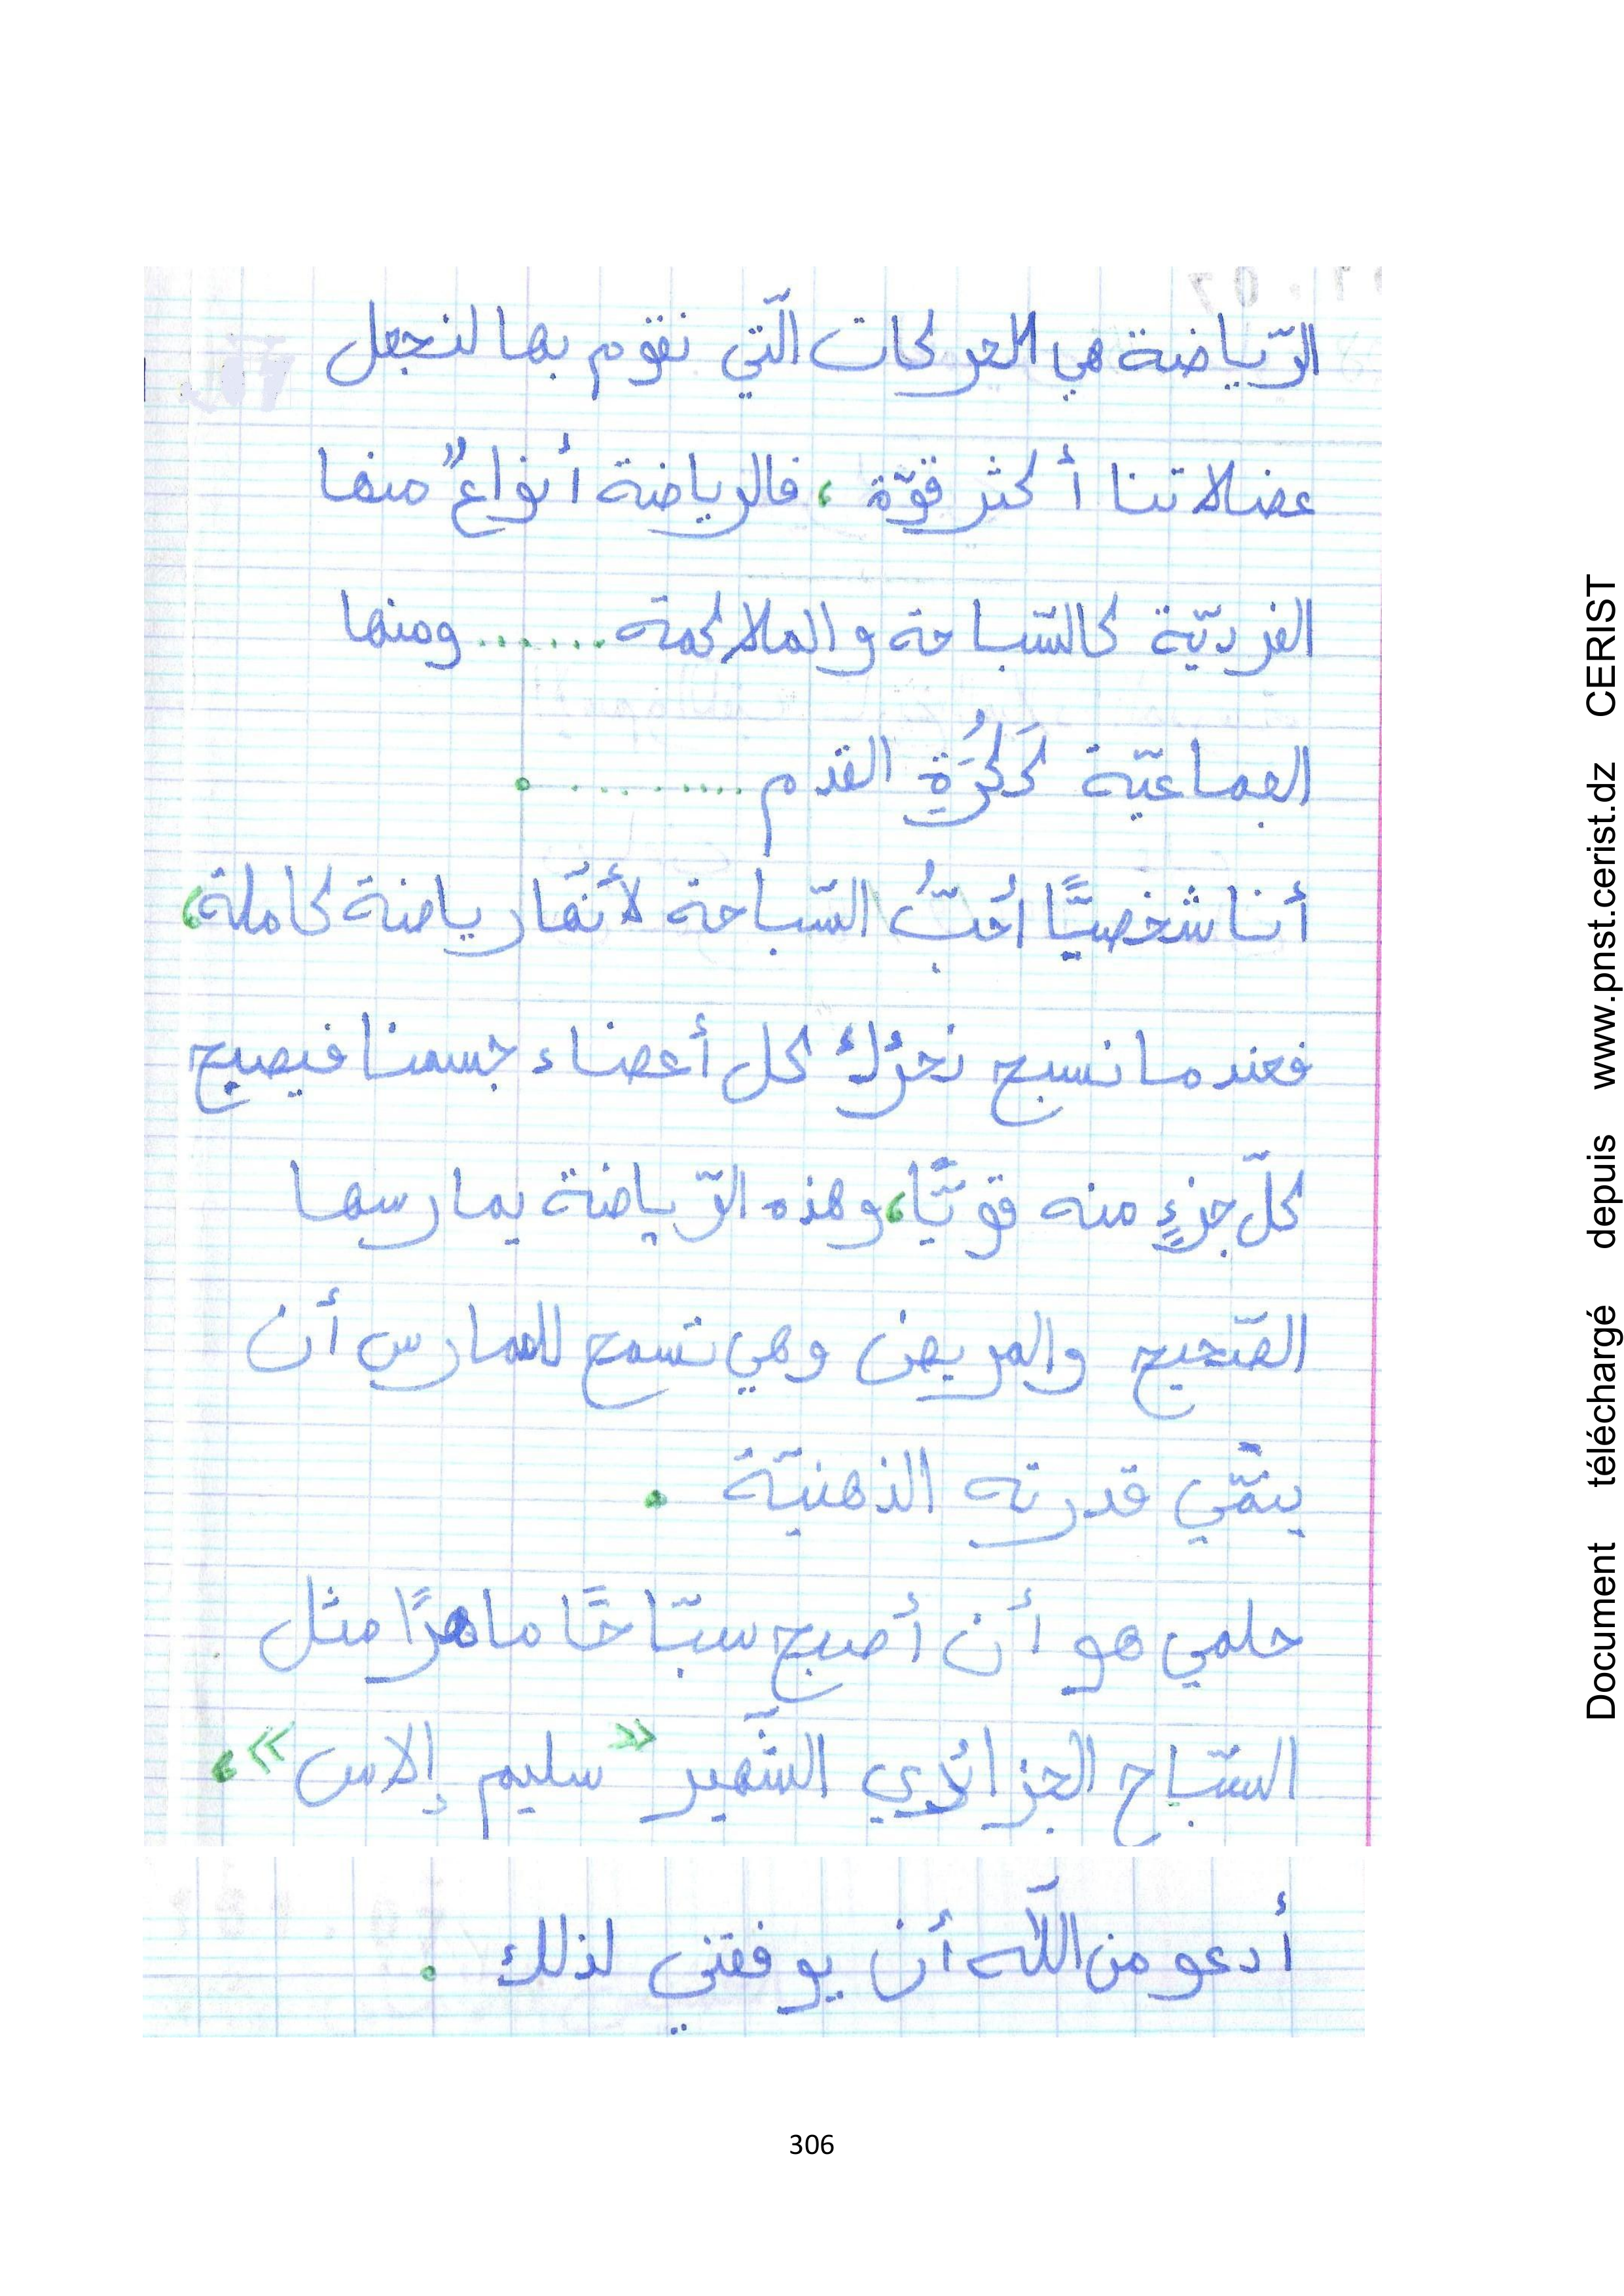 الرّياضة هي الحركات الّتي نقوم بها لنجعل
عضلاتنا أكثر قوّة ، فالرياضة أنواعٌ منها
الفرديّة كالسّباحة والملاكمة ...... ومنها
الجماعيّة كَكُرَةِ القدم ......... .
أنا شخصيًّا أُحبُّ السّباحة لأنّها رياضة كاملة،
فعندما نسبح نحرّك كل أعضاء جسمنا فيصبح
كلّ جزءٍ منه قويًّا، وهذه الرّياضة يمارسها
الصّحيح والمريض وهي تسمح للممارس أن
ينمّي قدرته الذهنيّة .
حلمي هو أن أصبح سبّاحًا ماهرًا مثل
السّباح الجزائري الشّهير « سليم إلاس »،
أدعو من اللّه أن يوفقني لذلك .
306
Document téléchargé depuis www.pnst.cerist.dz CERIST